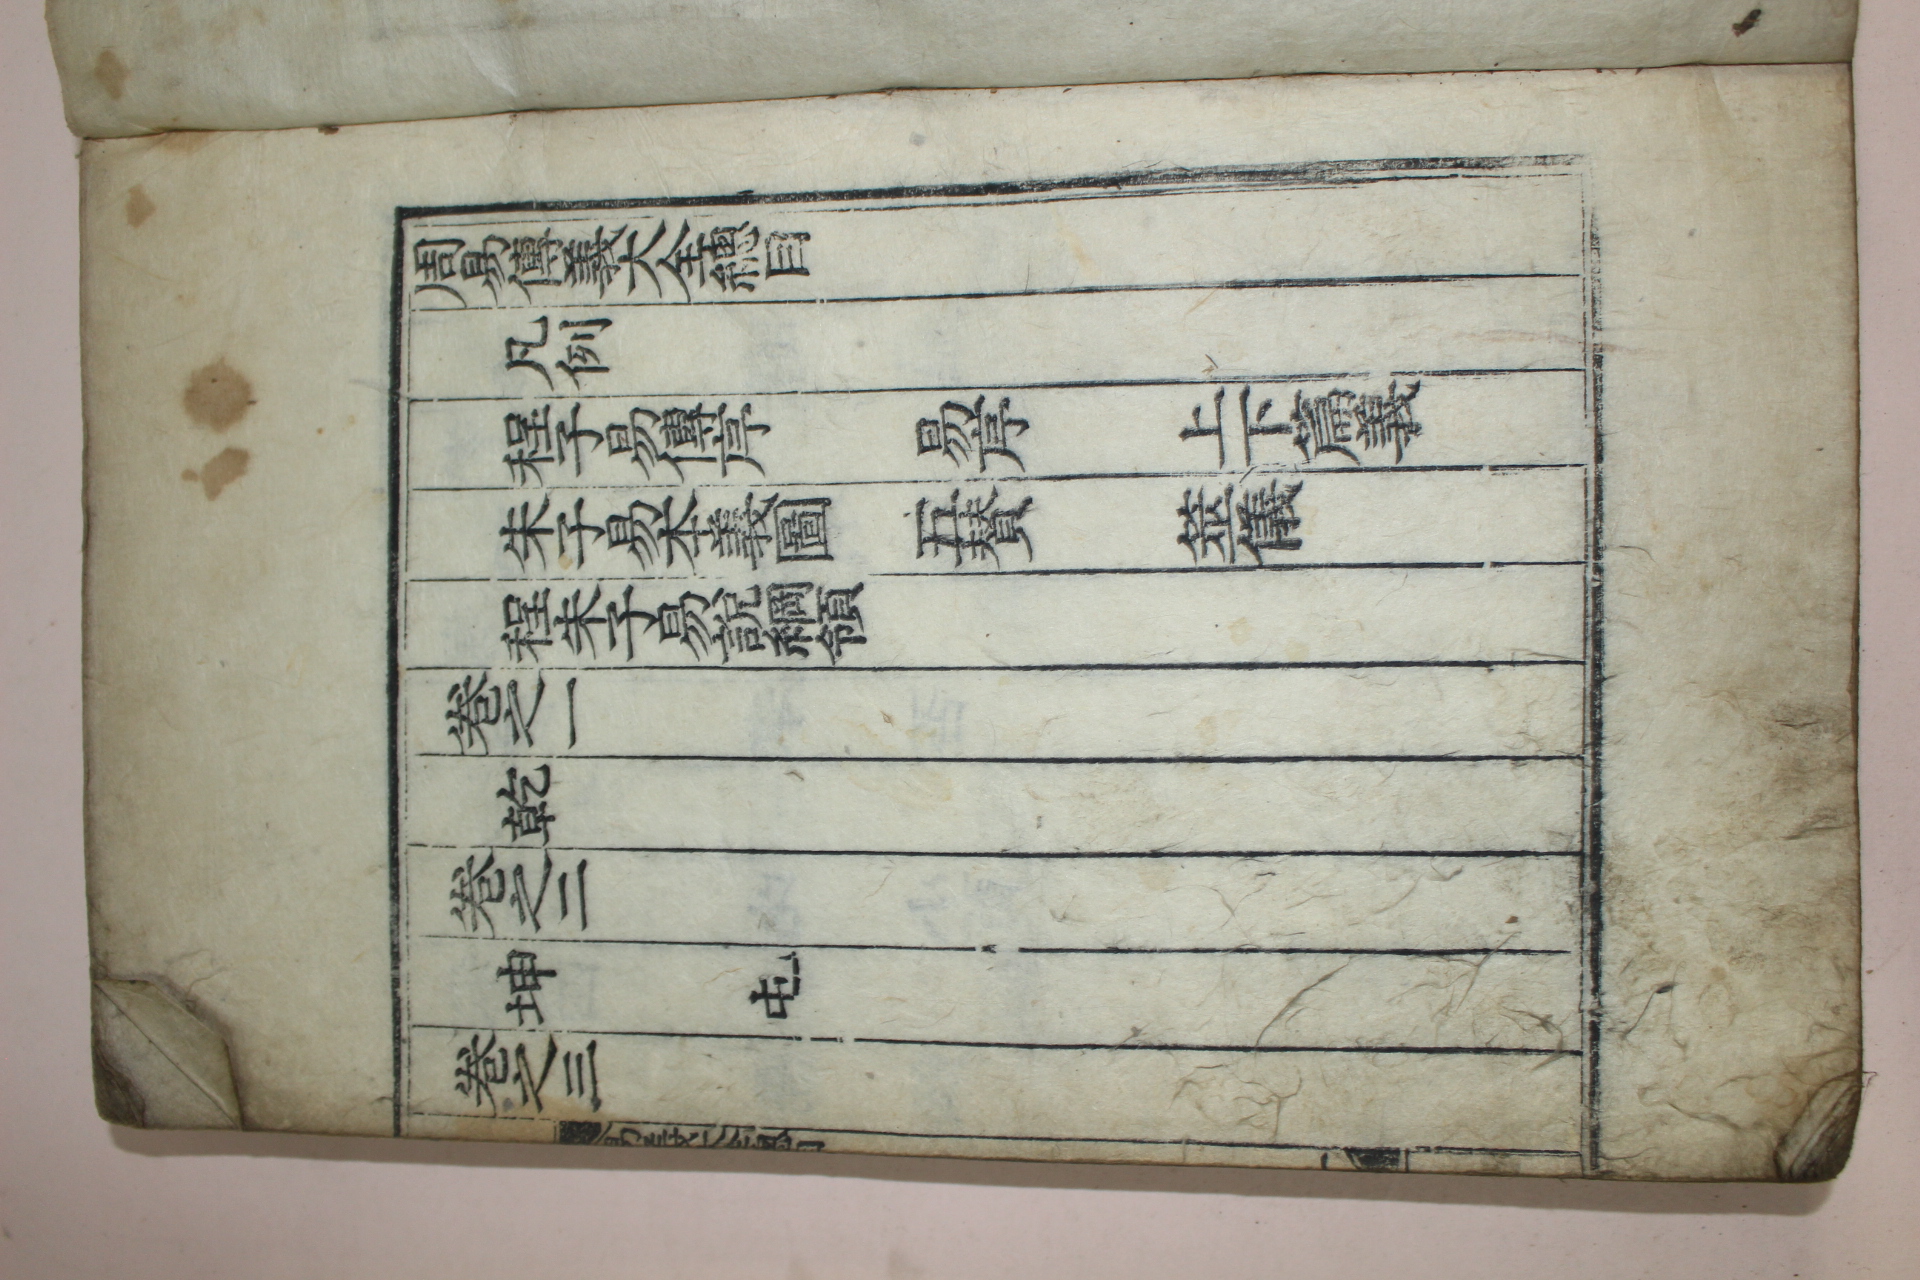 周易傳義大全總目
凡例
程子易傳序 易序 上下篇義
朱子易本義圖 五贊 筮儀
程朱子易說綱領
卷之一
乾
卷之二
坤 屯
卷之三